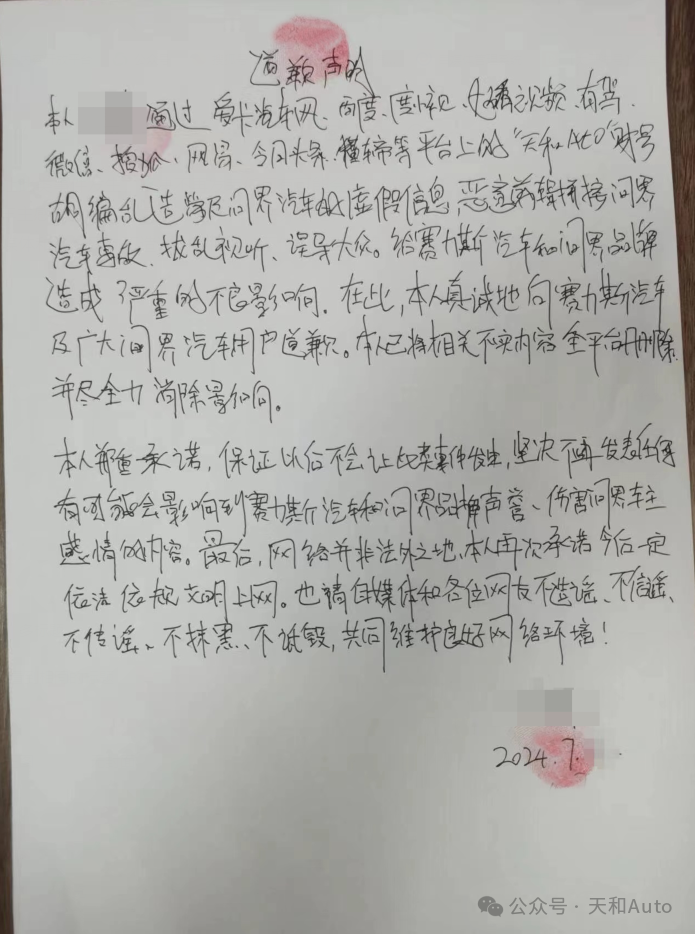 道歉声明
本人 通过爱卡汽车网、百度、度小视、好看视频、有驾、
微信、搜狐、网易、今日头条、懂车帝等平台上的“天和Auto”账号
胡编乱造涉及问界汽车的虚假信息,恶意剪辑拼接问界
汽车事故、扰乱视听、误导大众。给赛力斯汽车和问界品牌
造成严重的不良影响。在此,本人真诚地向赛力斯汽车
及广大问界汽车用户道歉。本人已将相关不实内容全平台删除
并尽全力消除影响。
本人郑重承诺,保证以后不会让此类事件发生,坚决不再发表任何
有可能会影响到赛力斯汽车和问界品牌声誉、伤害问界车主
感情的内容。最后,网络并非法外之地,本人再次承诺今后一定
依法依规文明上网。也请自媒体和各位网友不造谣、不信谣、
不传谣、不抹黑、不诋毁,共同维护良好网络环境!
2024.7.
公众号·天和Auto